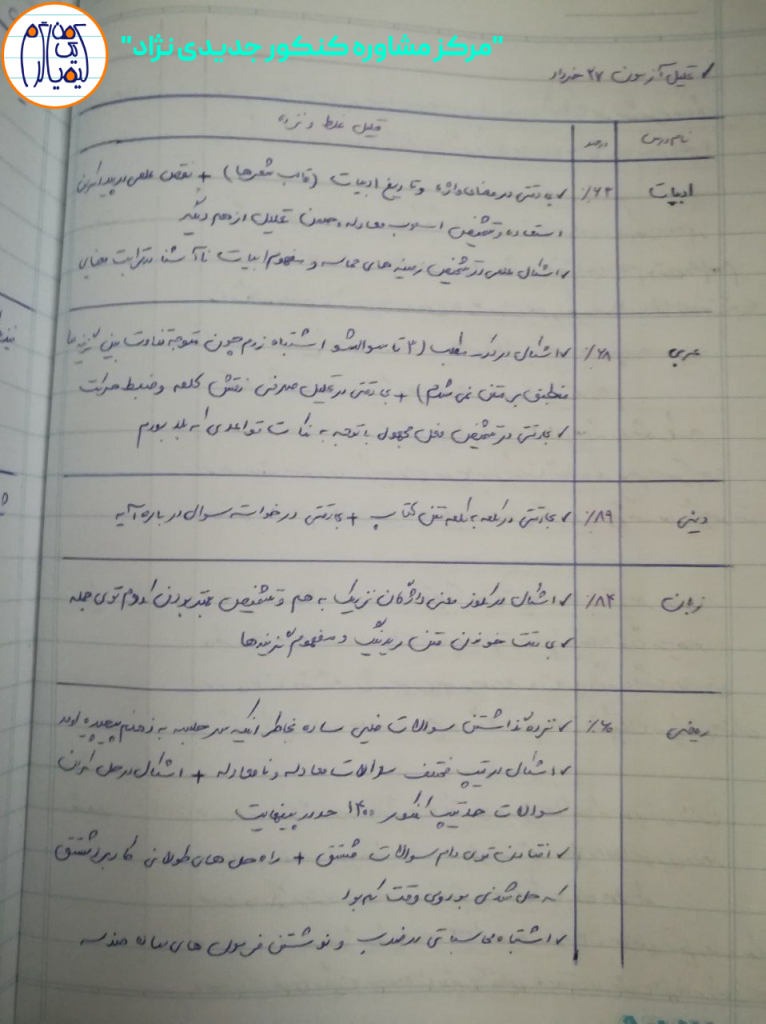 "مرکز مشاوره کنکور جدیدی نژاد"
کنکورم
کیمیاگر
تحلیل آزمون ۲۷ خرداد
نام درس درصد تحلیل غلط و نزده
ادبیات ٪۶۳ بی دقتی در معنای واژه و تاریخ ادبیات (قالب شعرها) + نقص علمی در پیدا کردن
استعاره و تشخیص اسلوب معادله و حسن تعلیل از هم دیگر
اشکال علمی در تشخیص زمینه های حماسه و مفهوم ابیات ناآشنا قرابت معنایی
عربی ٪۶۸ اشکال در درک مطلب (۳ تا سوالشو اشتباه زدم چون متوجه تفاوت بین گزینه ها
منطبق بر متن نمی شدم) + بی دقتی در تحلیل صرفی نقش کلمه و ضبط حرکت
بی دقتی در تشخیص فعل مجهول با توجه به نکات قواعدی که بلد بودم
دینی ٪۸۹ بی دقتی در کلمه به کلمه متن کتاب + بی دقتی در خواسته سوال درباره آیه
زبان ٪۸۴ اشکال در کلوز معنی واژگان نزدیک به هم و تشخیص بهتر بودن کدوم توی جمله
بی دقت خوندن متن ریدینگ و مفهوم گزینه ها
ریاضی ٪۶۰ نزده گذاشتن سوالات خیلی ساده بخاطر اینکه سر جلسه به ذهنم پیچیده اومد
اشکال در تیپ مختلف سوالات معادله و نامعادله + اشکال در حل کردن
سوالات جدید تیپ کنکور ۱۴۰۰ حد در بینهایت
افتادن توی دام سوالات مشتق + راه حل های طولانی کاربرد مشتق
که حل شدنی بود ولی وقت کم بود
اشتباه محاسباتی در ضرب و نوشتن فرمول های ساده هندسه